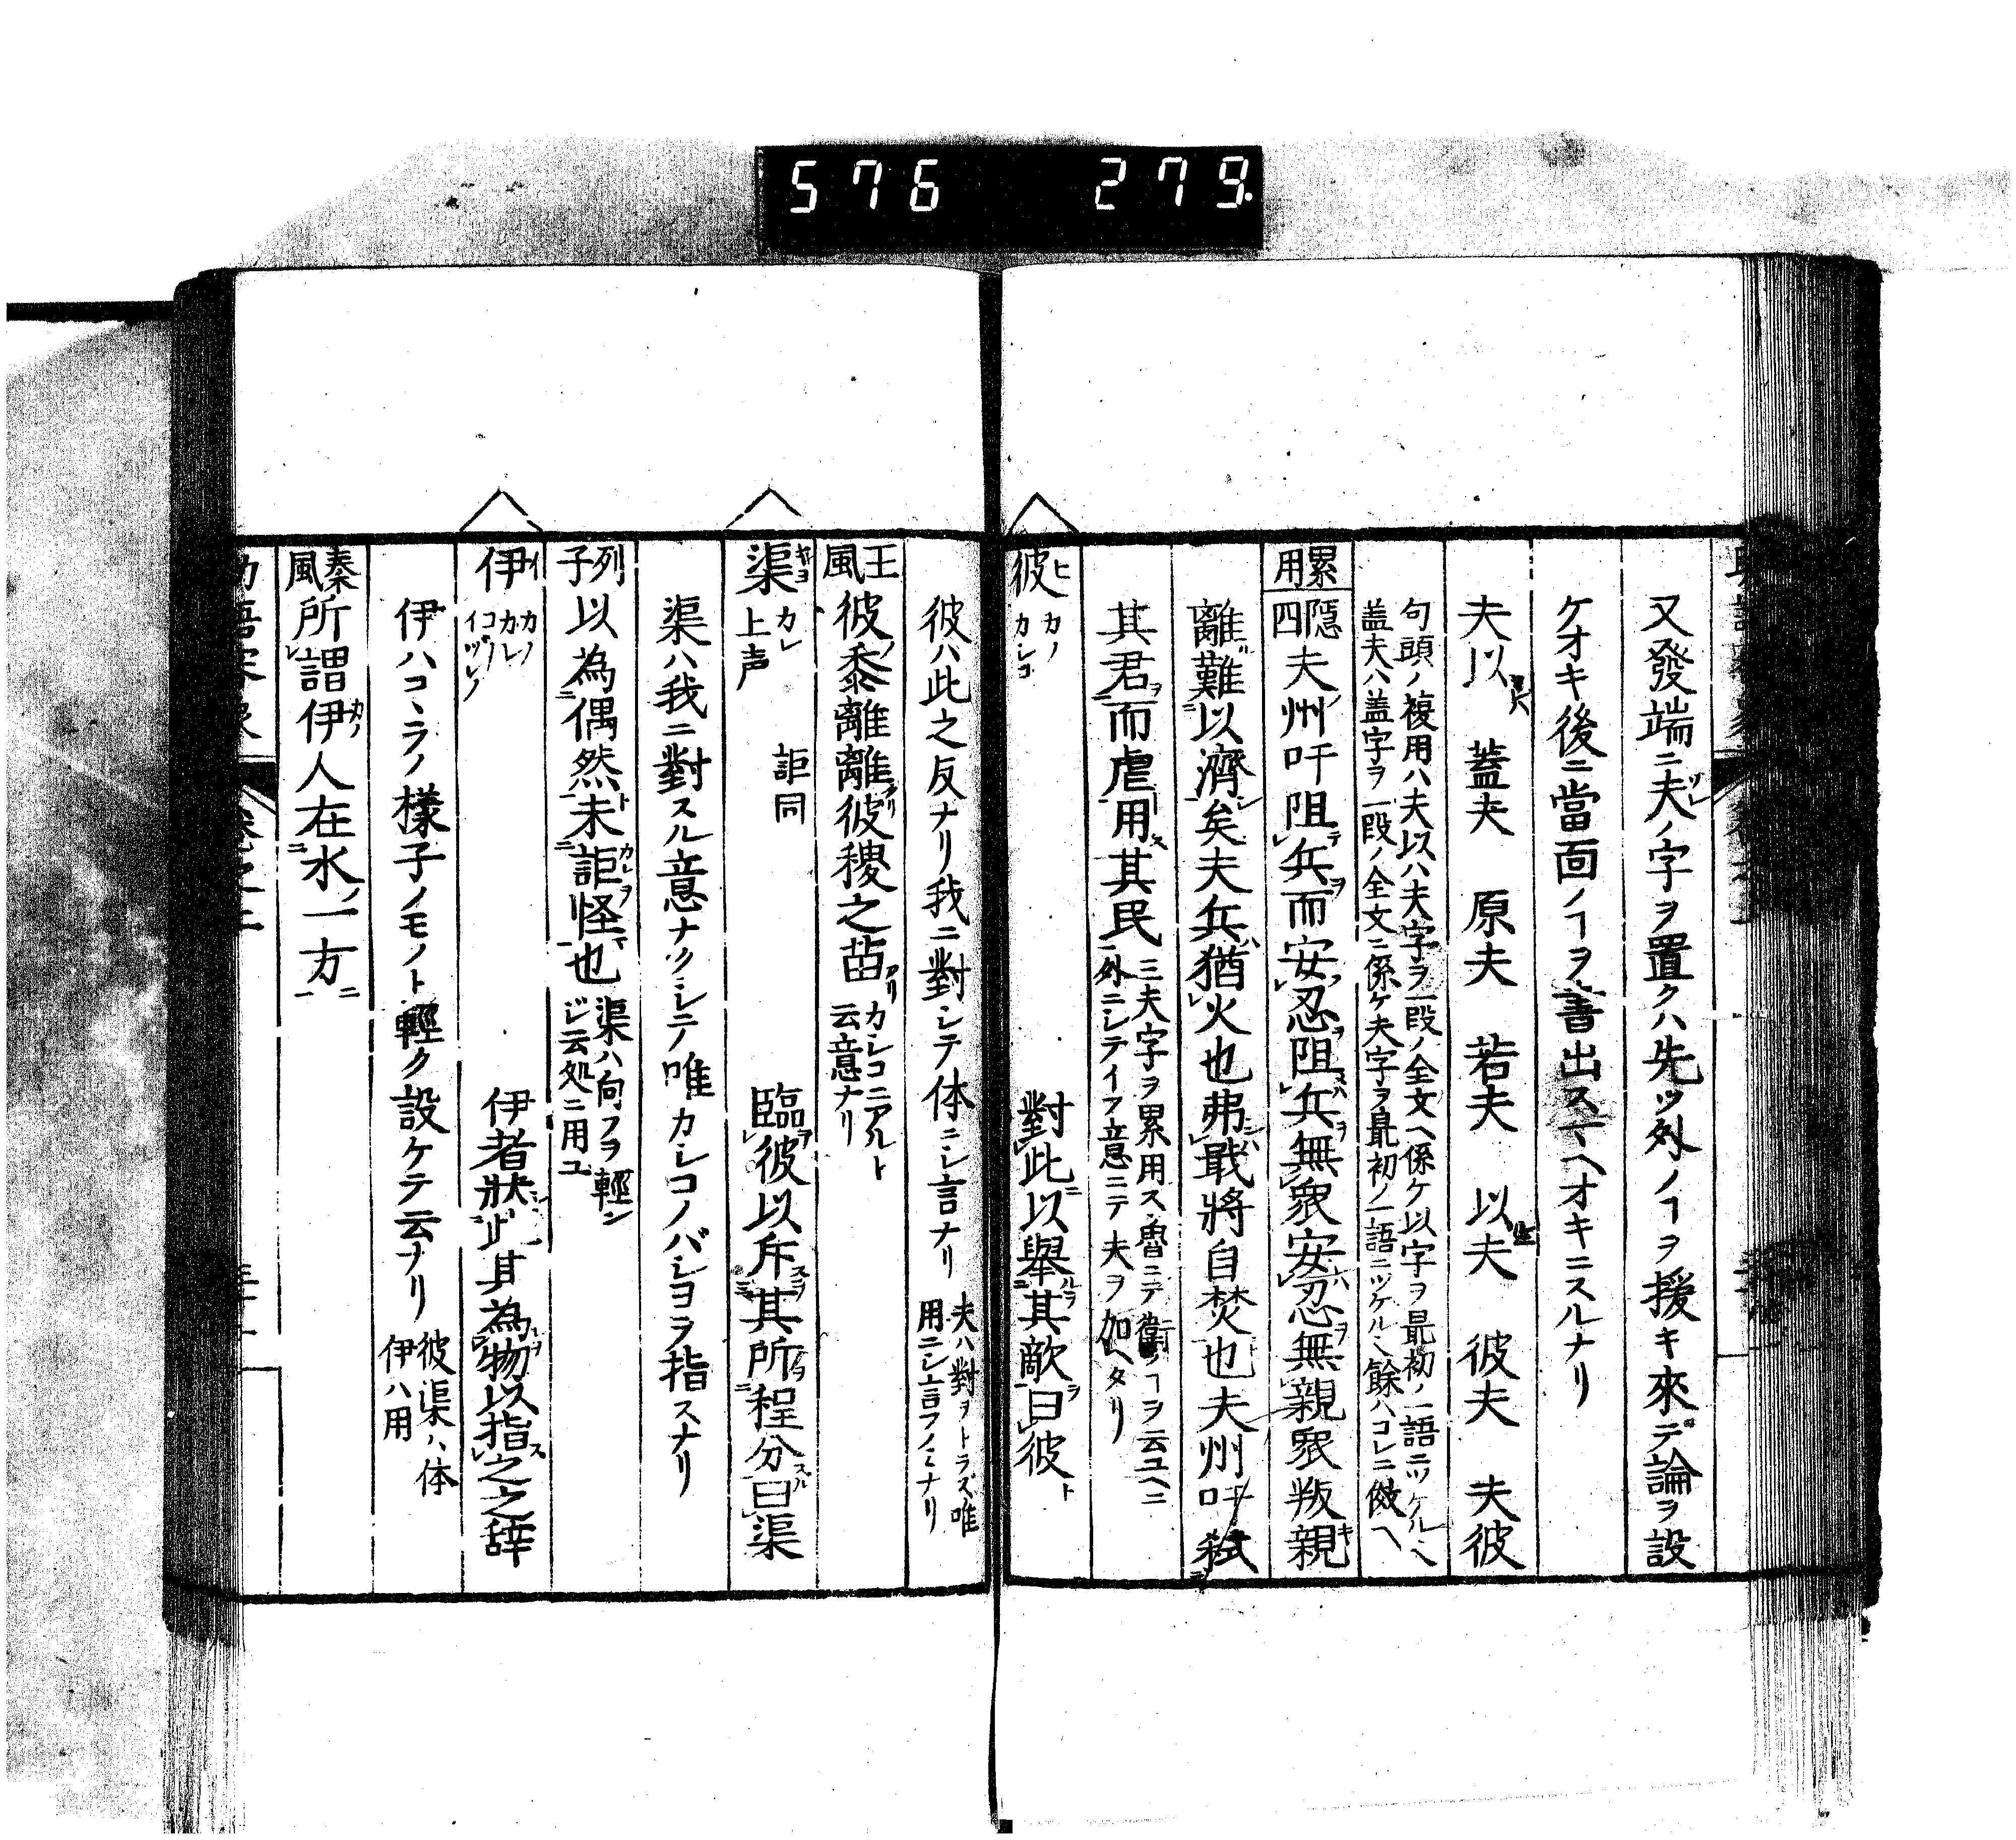 576 279.
又發端ニ夫ノ字ヲ置クハ先ツ外ノヿヲ援キ來テ論ヲ設
ケオキ後ニ當面ノヿヲ書出スマヘオキニスルナリ
夫以 蓋夫 原夫 若夫 以夫 彼夫 夫彼
句頭ノ複用ハ夫以ハ夫字ヲ一段ノ全文ヘ係ケ以字ヲ最初ノ一語ニツケル
蓋夫ハ蓋字ヲ一段ノ全文ニ係ケ夫字ヲ最初ノ一語ニツケル餘ハコレニ倣ヘ
累用 隱四 夫州吁阻兵而安忍阻兵無衆安忍無親衆叛親
離難以濟矣夫兵猶火也弗戢將自焚也夫州吁弑
其君而虐用其民 三夫字ヲ累用ス魯ニテ衛ノヿヲ云ユヘニ
外ニシテイフ意ニテ夫ヲ加ヘタリ
彼 ヒ カノ カレコ 對此以舉其敵曰彼
彼ハ此之反ナリ我ニ對シテ体ニシ言ナリ 夫ハ對ヲトラズ唯
用ニシ言フノミナリ
王風 彼黍離離彼稷之苗 カレコニアルト
云意ナリ
渠 キヨ カレ 上声 詎同 臨彼以斥其所程分曰渠
渠ハ我ニ對スル意ナクシテ唯カレコノバショヲ指スナリ
列子 以為偶然未詎怪也 渠ハ向フヲ輕ン
ジ云処ニ用ユ
伊 イ カノ カレ コノ イヅレノ 伊者狀此其為物以指之之辞
伊ハコヽラノ樣子ノモノト輕ク設ケテ云ナリ 彼渠ハ体
伊ハ用
秦風 所謂伊人在水一方